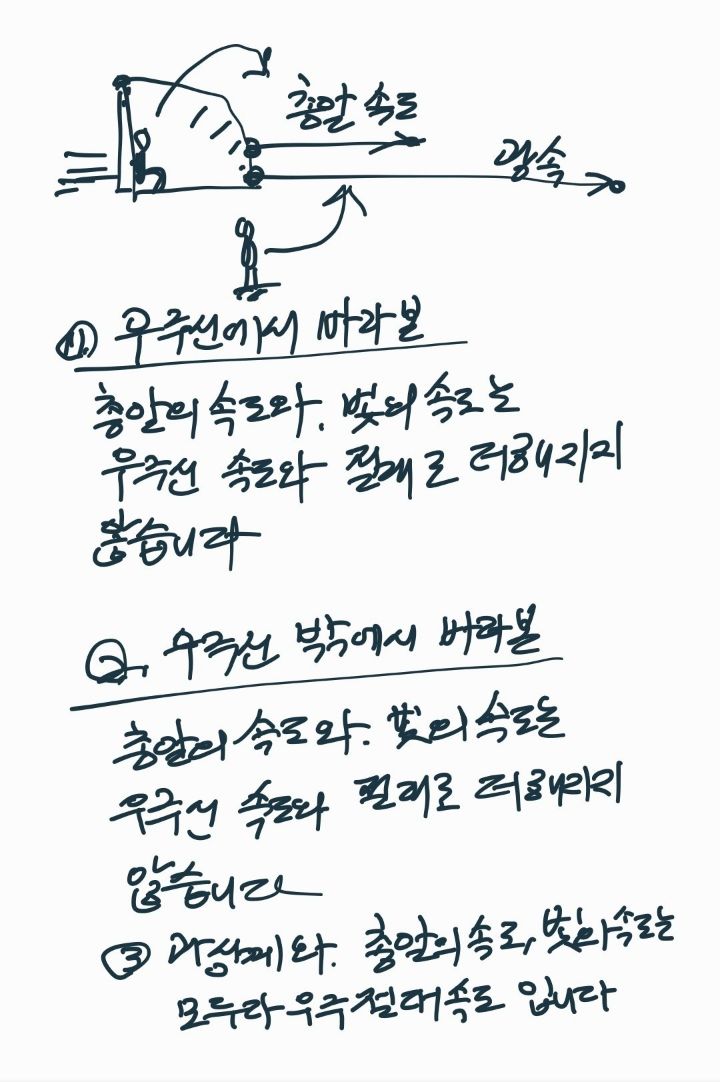 총알 속도
광속
①. 우주선에서 바라볼
총알의 속도와. 빛의 속도는
우주선 속도와 절대로 더해지지
않습니다
②. 우주선 밖에서 바라볼
총알의 속도와. 빛의 속도는
우주선 속도와 절대로 더해지지
않습니다
③ 와. 총알의 속도, 빛의 속도는
모두다 우주절대속도 입니다